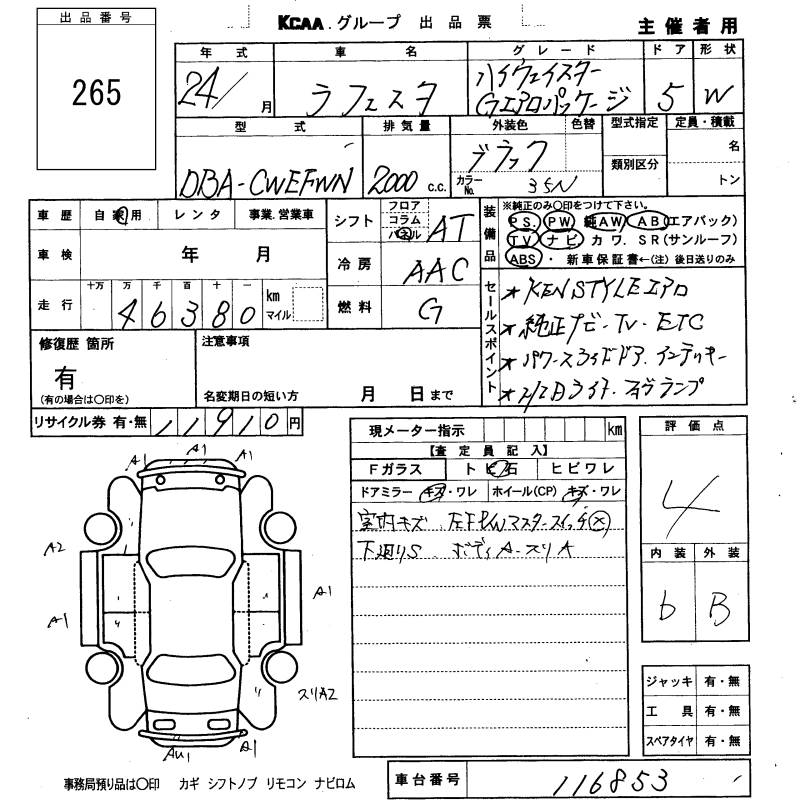 出品番号
265
KCAA.グループ 出品票
主催者用
年式 車名 グレード ドア 形状
24/ 月 ラフェスタ ハイウェイスター
Gエアロパッケージ 5 W
型式 排気量 外装色 色替 型式指定 定員・積載
DBA-CWEFWN 2000 c.c. ブラック 名
カラーNo. 35N 類別区分 トン
車歴 自家用 レンタ 事業.営業車
車検 年 月
走行 十万 万 千 百 十 一 km マイル
4 6 3 8 0
シフト フロア コラム パネル AT
冷房 AAC
燃料 G
装備品
※純正のみ〇印をつけて下さい。
PS. PW 純AW AB(エアバック)
TV ナビ カワ. SR(サンルーフ)
ABS・ 新車保証書←(注)後日送りのみ
セールスポイント
★KENSTYLEエアロ
★純正ナビ・TV・ETC
★パワースライドドア.インテリキー
★HIDライト.フォグランプ
修復歴 箇所
有
(有の場合は〇印を)
注意事項
名変期日の短い方 月 日まで
リサイクル券 有・無 11910円
現メーター指示 km
【査定員記入】
Fガラス トビ石 ヒビワレ
ドアミラー キズ・ワレ ホイール(CP) キズ・ワレ
室内キズ 左F P/Wマスタースイッチ×
下廻りS ボディA・スリA
評価点
4
内装 外装
b B
ジャッキ 有・無
工具 有・無
スペアタイヤ 有・無
A1 A1 A1
A2
A1 A1
スリA2
AU1 A1
事務局預り品は〇印 カギ シフトノブ リモコン ナビロム
車台番号 116853